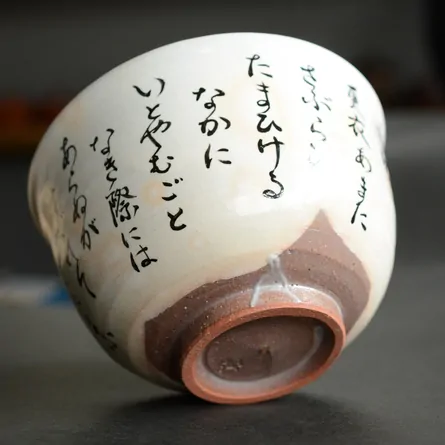 更衣あまた
さぶらひ
たまひける
なかに
いとやむごと
なき際には
あらぬが